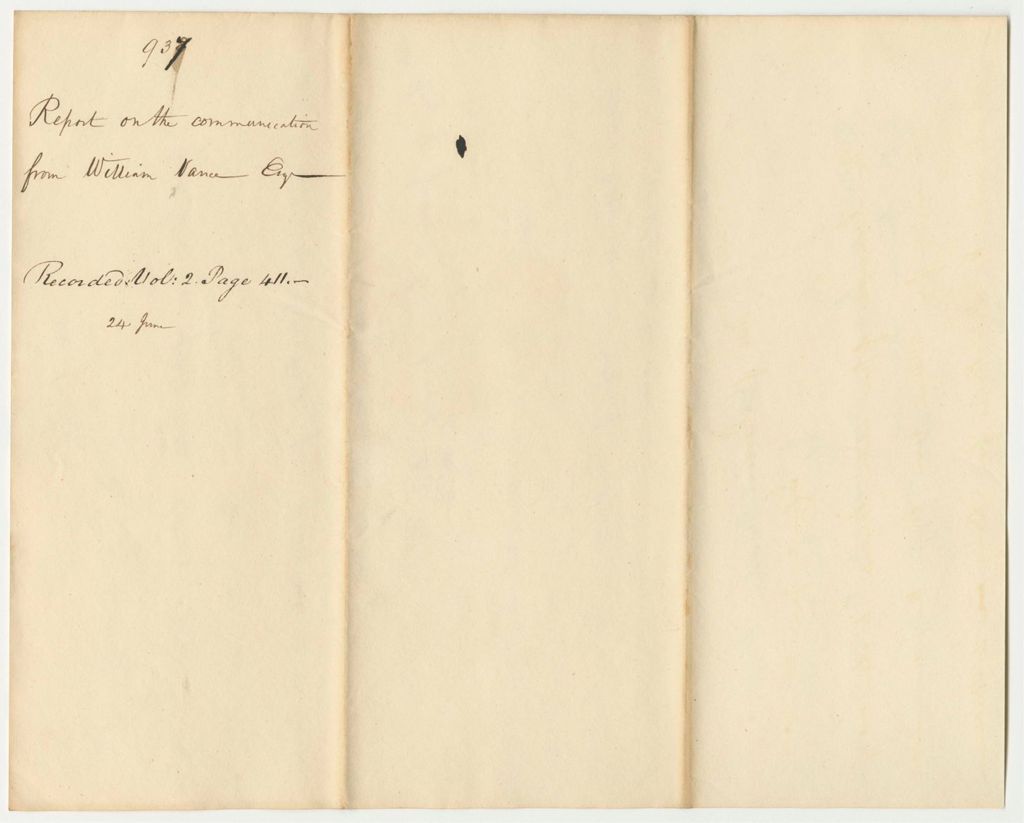 937
Report on the communication
from William Vance Esqr
Recorded: Vol: 2. Page 411.—
24 June